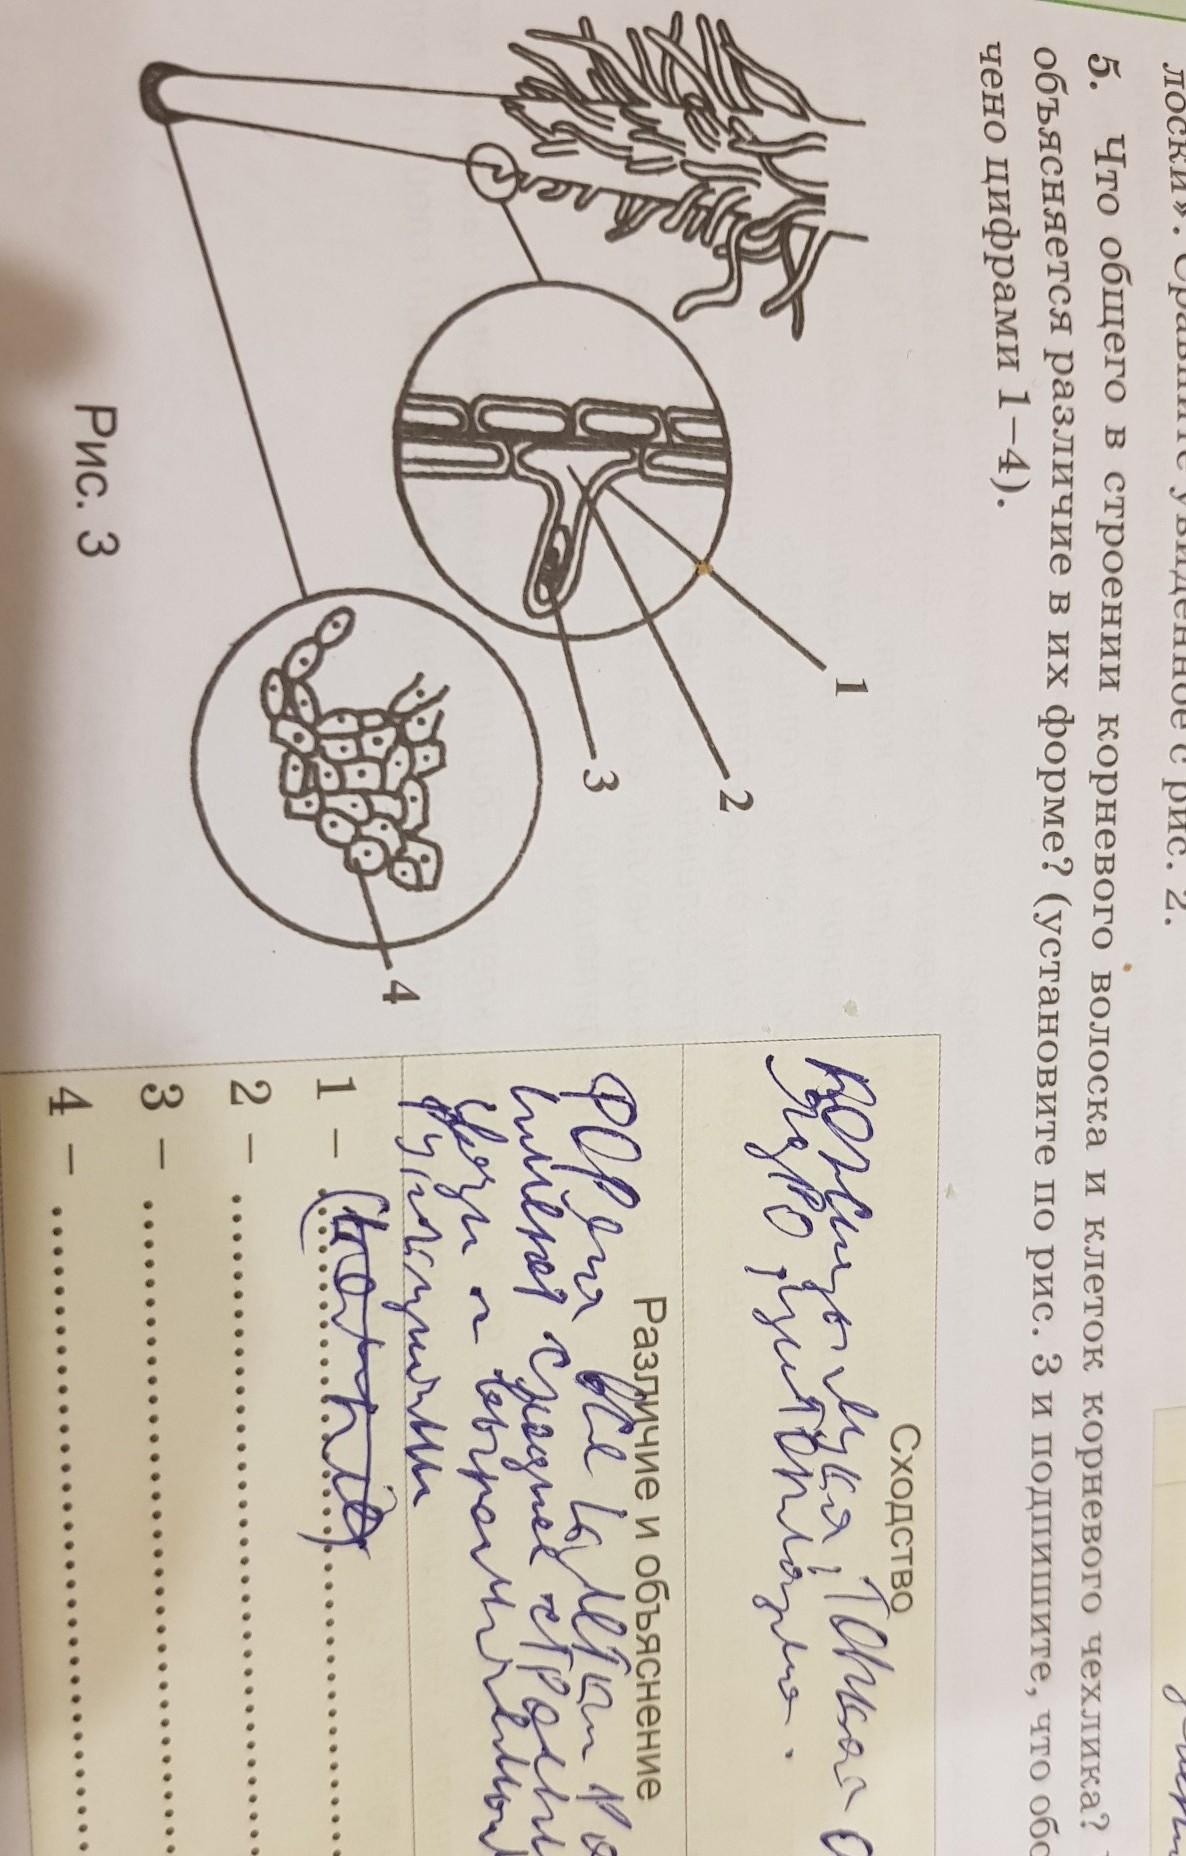 лоски». Сравните увиденное с рис. 2.
5. Что общего в строении корневого волоска и клеток корневого чехлика?
объясняется различие в их форме? (установите по рис. 3 и подпишите, что обо
чено цифрами 1—4).
1
2
3
4
Рис. 3
Сходство
тонкая
ядро, цитоплазма.
Различие и объяснение
форма
имеют
связи с выполняемыми
функциями
1 –
2 –
3 –
4 –